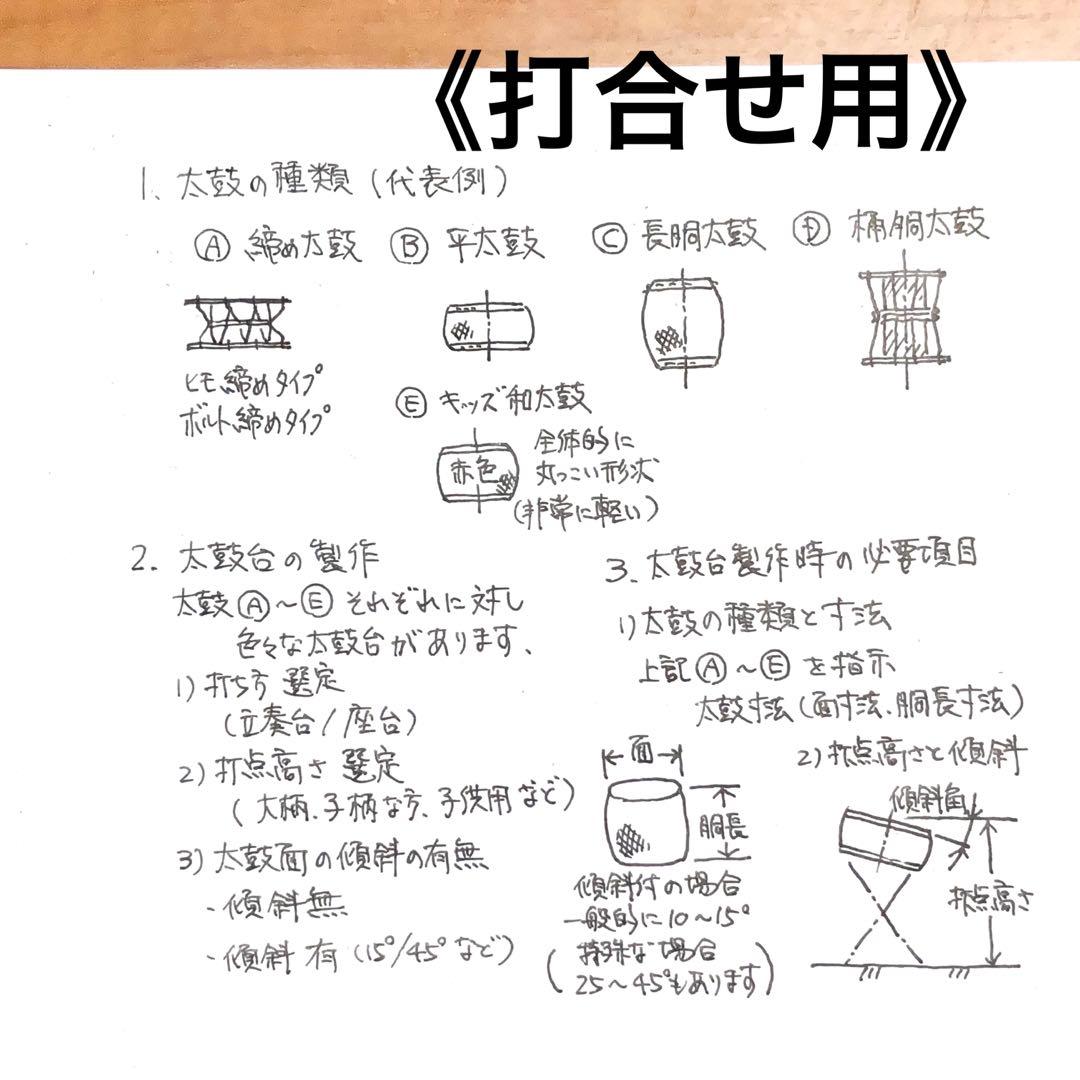 《打合せ用》
1、太鼓の種類（代表例）
Ⓐ 締め太鼓 Ⓑ 平太鼓 Ⓒ 長胴太鼓 Ⓓ 桶胴太鼓
ヒモ締めタイプ
ボルト締めタイプ
Ⓔ キッズ和太鼓
赤色
全体的に
丸っこい形状
（非常に軽い）
2. 太鼓台の製作
太鼓Ⓐ〜Ⓔそれぞれに対し
色々な太鼓台があります、
1）打ち方 選定
（立奏台/座台）
2）打点高さ 選定
（大柄、子柄な方、子供用など）
3）太鼓面の傾斜の有無
・傾斜無
・傾斜 有（15°/45°など）
3. 太鼓台製作時の必要項目
1）太鼓の種類と寸法
上記Ⓐ〜Ⓔを指示
太鼓寸法（面寸法、胴長寸法）
面
胴長
傾斜付の場合
一般的に10〜15°
（特殊な場合
25〜45°もあります）
2）打点高さと傾斜
傾斜角
打点高さ